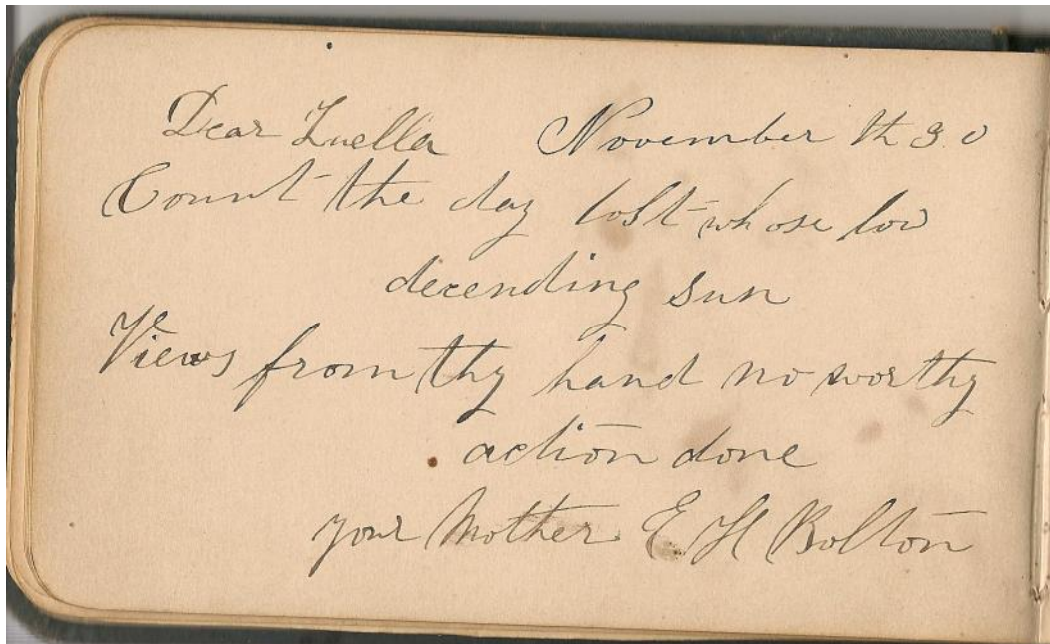 Dear Luella November th 30
Count the day lost whose low
decending sun
Views from thy hand no worthy
action done
your Mother E H Bolton